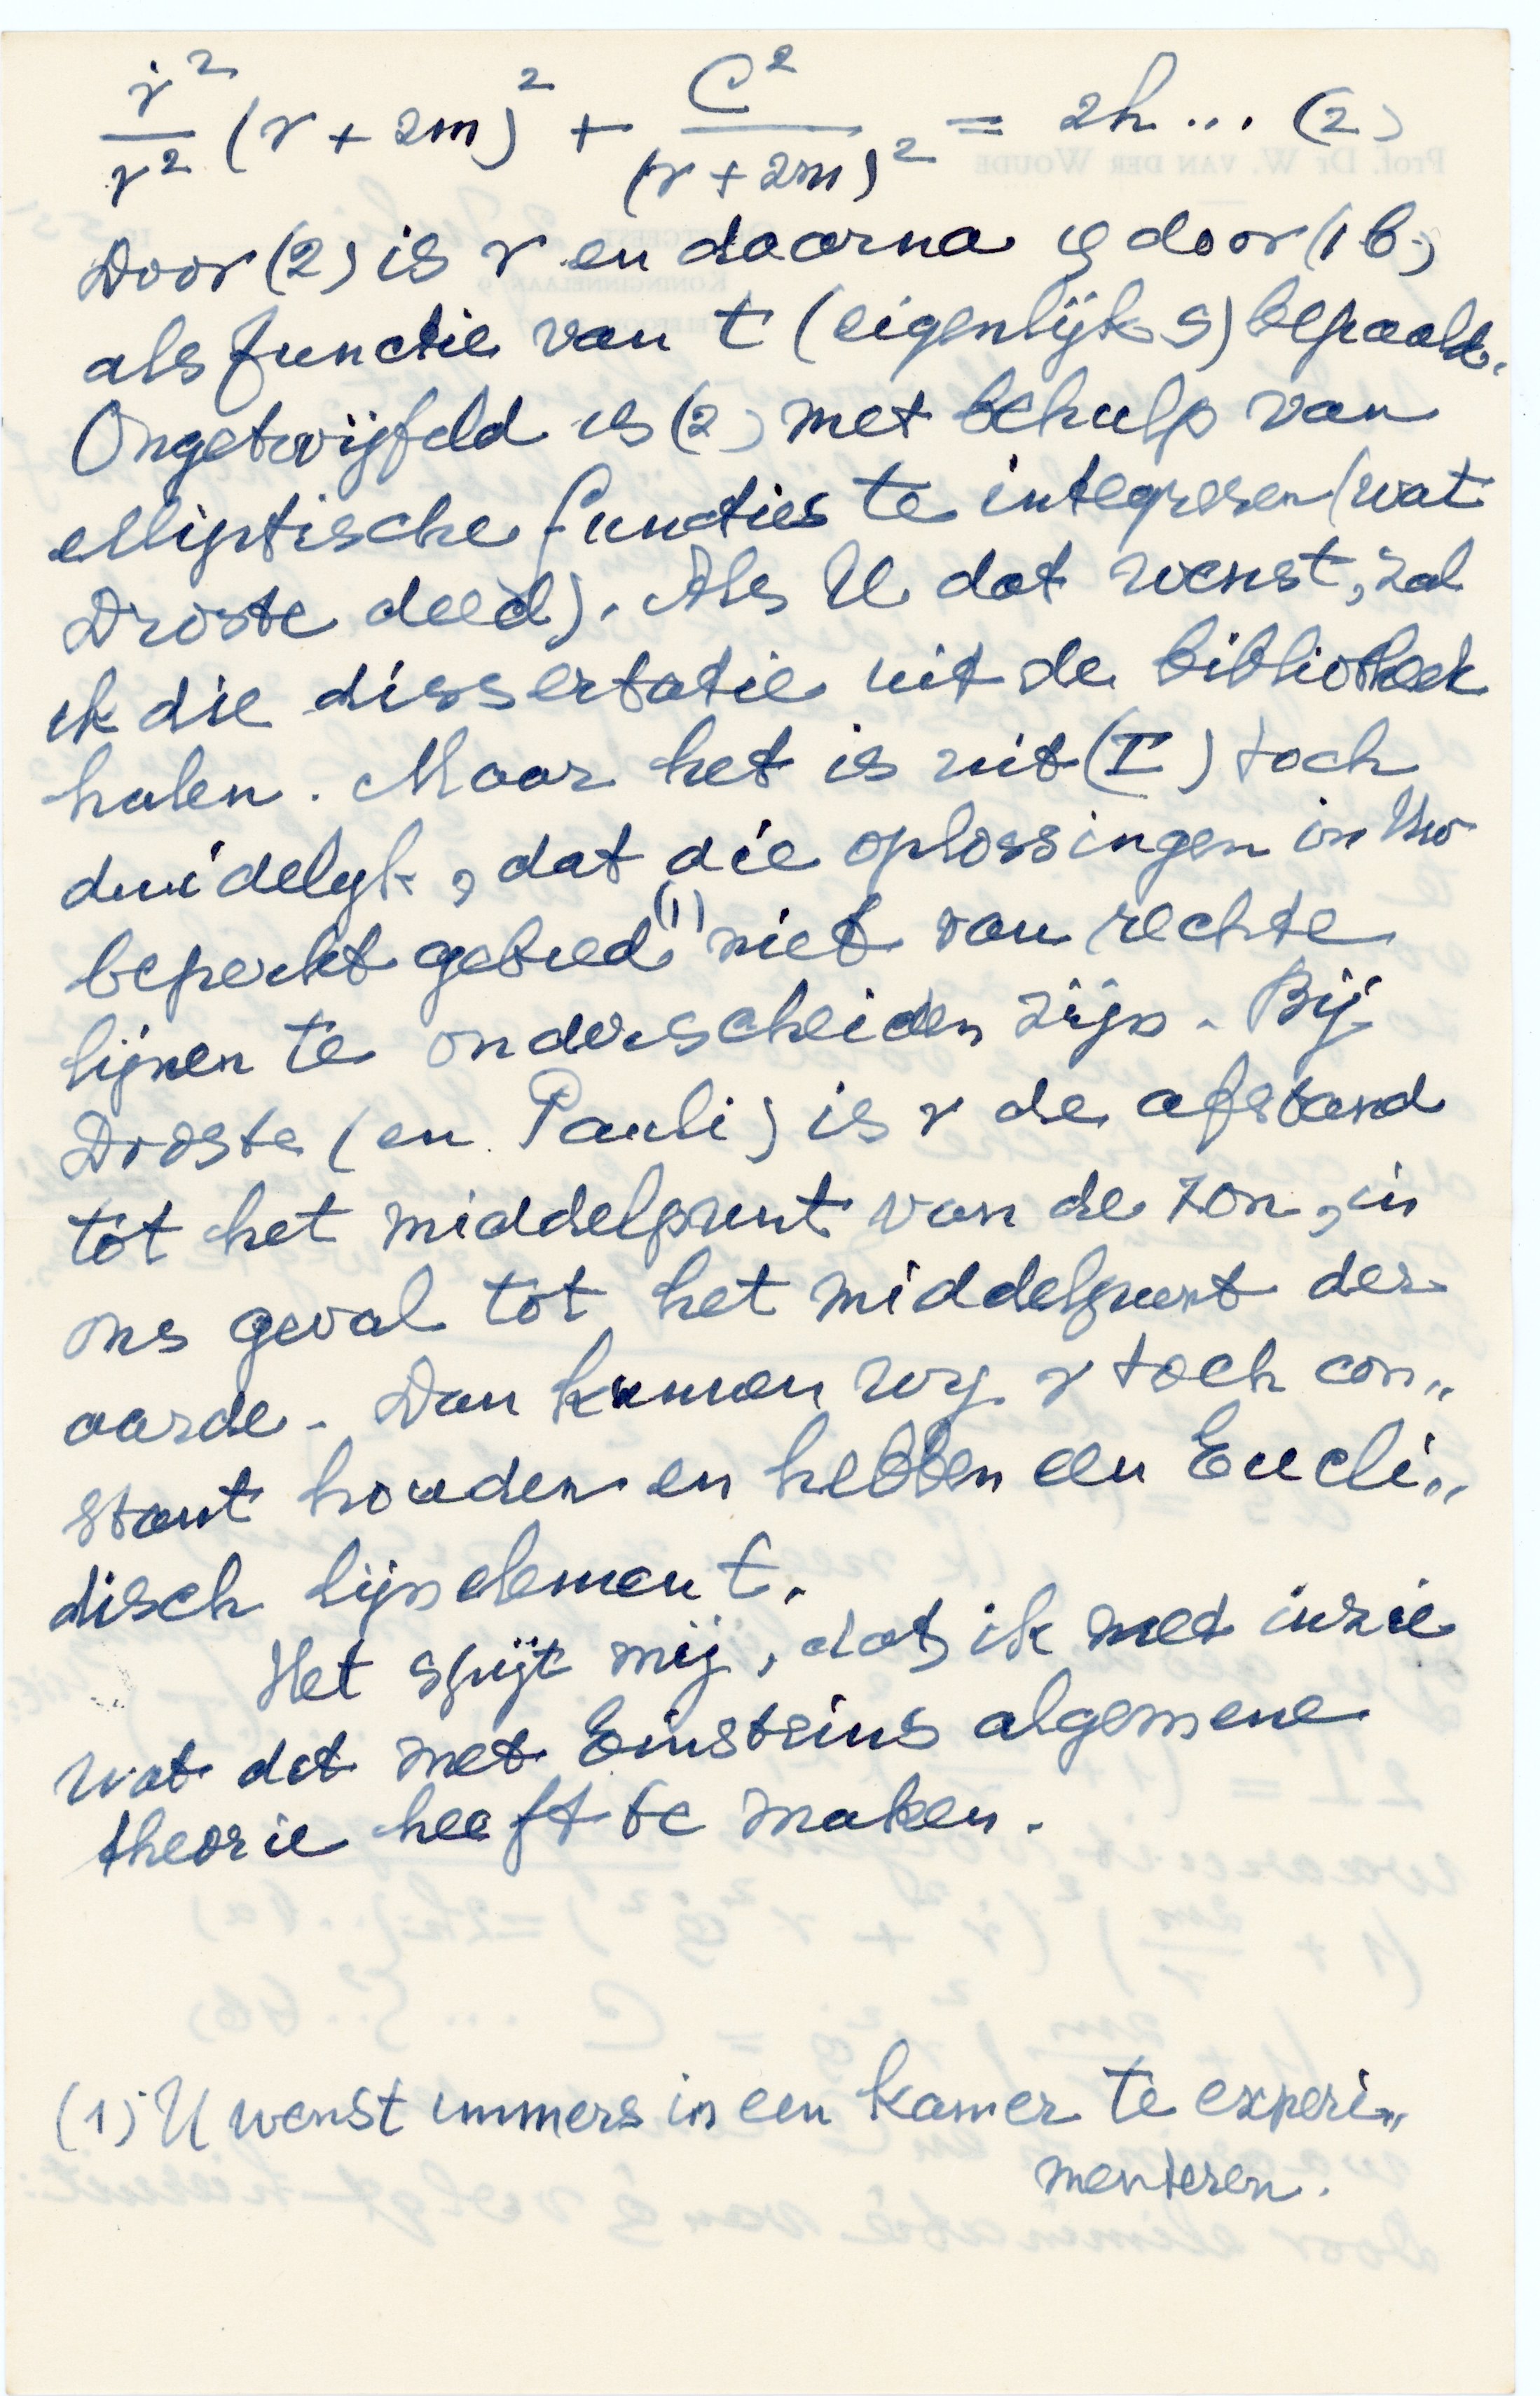 ṙ²/r² (r + 2m)² + C²/(r + 2m)² = 2h ... (2)
Door (2) is r en daarna φ door (1b)
als functie van t (eigenlijk s) bepaald.
Ongetwijfeld is (2) met behulp van
elliptische functies te integreren (wat
Droste deed). Als U dat wenst, zal
ik die dissertatie uit de bibliotheek
halen. Maar het is uit (I) toch
duidelyk, dat die oplossingen in Uw
beperkt gebied (1) niet van rechte
lijnen te onderscheiden zijn. Bij
Droste (en Pauli) is r de afstand
tot het middelpunt van de zon, in
ons geval tot het middelpunt der
aarde. Dan kunnen wy r toch con„
stant houden en hebben een Eucli„
disch lijnelement.
Het spijt mij, dat ik niet inzie
wat dit met Einsteins algemene
theorie heeft te maken.
(1) U wenst immers in een kamer te experi„
menteren.